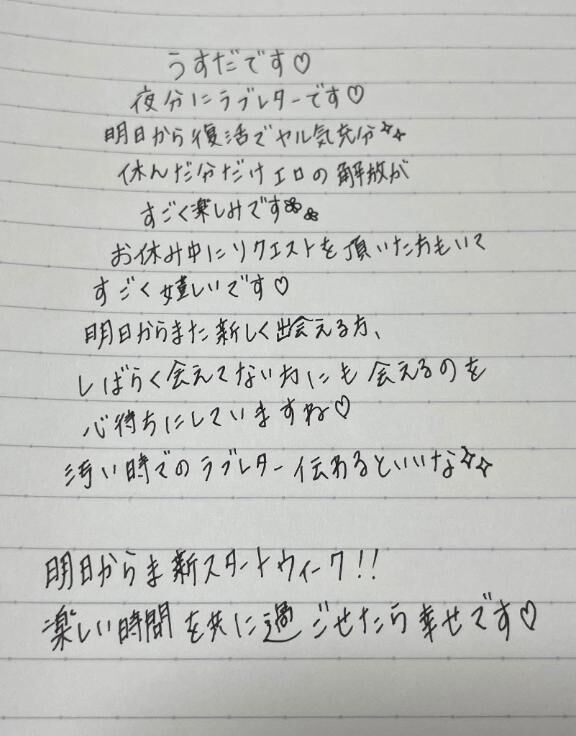 うすだです♡
夜分にラブレターです♡
明日から復活でヤル気充分✧✧
休んだ分だけエロの解放が
すごく楽しみです
お休み中にリクエストを頂いた方もいて
すごく嬉しいです♡
明日からまた新しく出会える方、
しばらく会えてない方にも会えるのを
心待ちにしていますね♡
汚い時でのラブレター伝わるといいな✧✧
明日からま新スタートウィーク!!
楽しい時間を共に過ごせたら幸せです♡